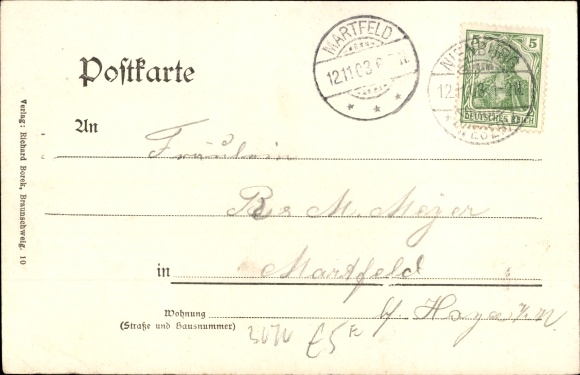 Postkarte
MARTFELD
12.11.03
5
DEUTSCHES REICH
NIENBURG
12.11.
(WESER)
An
Fräulein
M. Meyer
in Martfeld
Wohnung
(Straße und Hausnummer)
b/ Hoya
£5
Verlag: Richard Borek, Braunschweig. 10